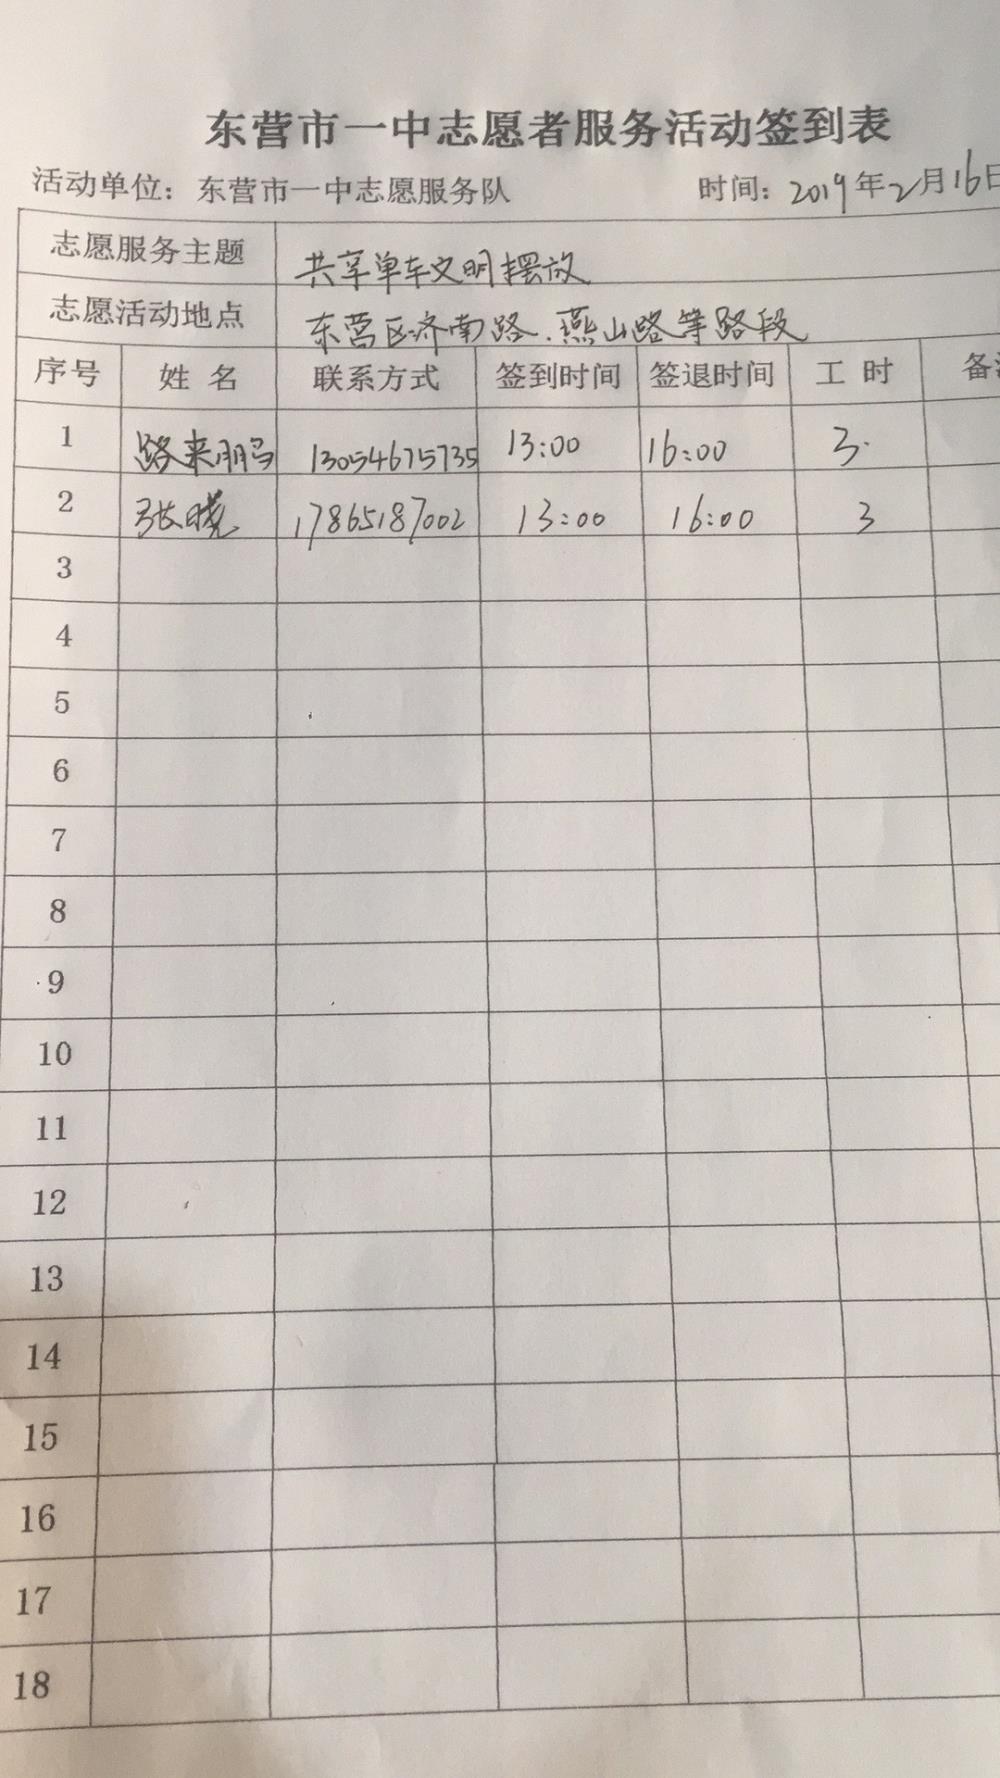 东营市一中志愿者服务活动签到表
活动单位：东营市一中志愿服务队 时间：2019年2月16日
志愿服务主题 共享单车文明摆放
志愿活动地点 东营区济南路.燕山路等路段
序号 姓名 联系方式 签到时间 签退时间 工时 备
1 路来鹏 13054675735 13:00 16:00 3.
2 张晓 17865187002 13:00 16:00 3
3
4
5
6
7
8
9
10
11
12
13
14
15
16
17
18